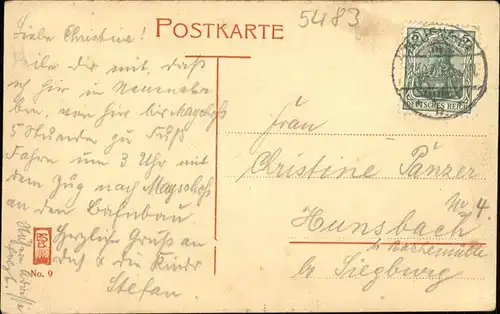 5483
POSTKARTE
Liebe Christine!
Teile dir mit, daß
ich hier in
bin, von hier bis Mayschoß
5 Stunden zu Fuß
Fahre um 3 Uhr mit
dem Zug nach Mayschoß
an den Bahnbau
Herzliche Gruß an
dich & die Kinder
Stefan.
No. 9
DEUTSCHES REICH
Frau
Christine Panzer
Hunsbach
No 4
b/ Siegburg